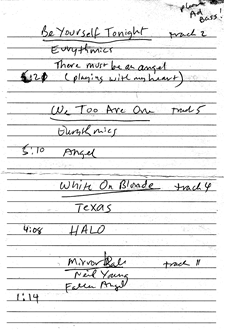 phone
Ad
Bass.
Be Yourself Tonight track 2
Eurythmics
There must be an angel
5:21 (playing with my heart)
We Too Are One track 5
Eurythmics
5:10 Angel
White On Blonde track 4
Texas
4:08 HALO
Mirror Ball track 11
Neil Young
Fallen Angel
1:14